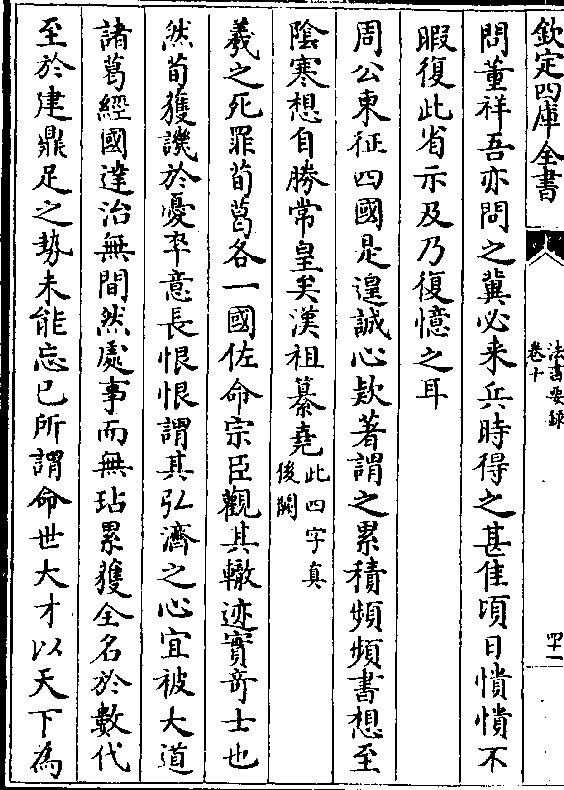 欽定四庫全書
法書要錄
卷十
四十一
問董祥吾亦問之冀必来兵時得之甚佳項日憒憒不
暇復此省示及乃復憶之耳
周公東征四國是遑誠心欵著謂之累積頻頻書想至
陰寒想自勝常皇矣漢祖纂堯此四字真後闕
羲之死罪荀葛各一國佐命宗臣觀其轍迹實竒士也
然荀獲譏於憂卒意長恨恨謂其弘濟之心宜被大道
諸葛經國達治無間然處事而無玷累獲全名於數代
至於建鼎足之勢未能忘已所謂命世大才以天下為